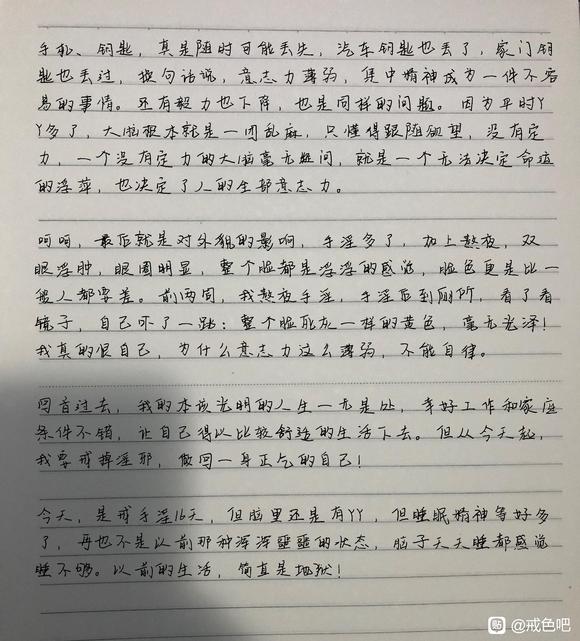 手机、钥匙，真是随时可能丢失，汽车钥匙也丢了，家门钥
匙也丢过，换句话说，意志力薄弱，集中精神成为一件不容
易的事情。还有毅力也下降，也是同样的问题。因为平时Y
Y多了，大脑根本就是一团乱麻，只懂得跟随欲望，没有定
力，一个没有定力的大脑毫无疑问，就是一个无法决定命运
的浮萍，也决定了人的全部意志力。
呵呵，最后就是对外貌的影响，手淫多了，加上熬夜，双
眼浮肿，眼圈明显，整个脸都是浮浮的感觉，脸色更是比一
般人都要差。前两周，我熬夜手淫，手淫后到厕所，看了看
镜子，自己吓了一跳：整个脸死灰一样的黄色，毫无光泽！
我真的恨自己，为什么意志力这么薄弱，不能自律。
回首过去，我的本该光明的人生一无是处，幸好工作和家庭
条件不错，让自己得以比较舒适的生活下去。但从今天起，
我要戒掉淫邪，做回一身正气的自己！
今天，是戒手淫16天，但脑里还是有YY，但睡眠精神等好多
了，再也不是以前那种浑浑噩噩的状态，脑子天天睡都感觉
睡不够。以前的生活，简直是地狱！
贴 @戒色吧